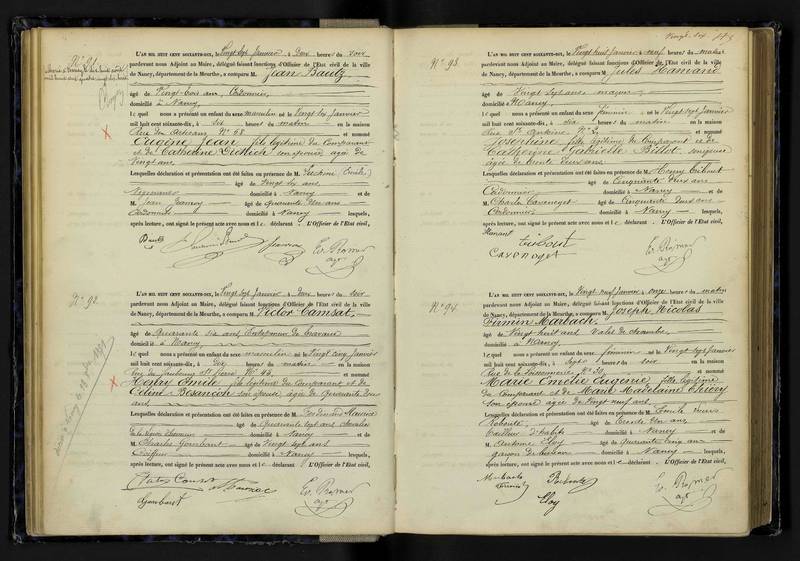 N° 91
L'AN MIL HUIT CENT SOIXANTE-DIX, le Vingt sept Janvier à Deux heures du soir
pardevant nous Adjoint au Maire, délégué faisant fonctions d'Officier de l'Etat civil de la ville
de Nancy, département de la Meurthe, a comparu M. Jean Bautz
âgé de Vingt trois ans, Cordonnier,
domicilié à Nancy,
lequel nous a présenté un enfant du sexe masculin né le Vingt six Janvier
mil huit cent soixante-dix, à six heures du matin en la maison
Rue des Artisans N° 68 et nommé
Eugène Jean fils légitime du Comparant
et de Catherine son épouse âgée de
Vingt ans
Lesquelles déclaration et présentation ont été faites en présence de M. (Emile)
âgé de Vingt six ans
domicilié à Nancy et de
M. Jean âgé de quarante un ans
Cordonnier domicilié à Nancy lesquels,
après lecture, ont signé le présent acte avec nous et le déclarant. L'Officier de l'Etat civil,
Bautz
Ev. Romer
adjt
N° 92
L'AN MIL HUIT CENT SOIXANTE-DIX, le Vingt sept Janvier à Deux heures du soir
pardevant nous Adjoint au Maire, délégué faisant fonctions d'Officier de l'Etat civil de la ville
de Nancy, département de la Meurthe, a comparu M. Victor
âgé de Quarante six ans Entrepreneur de travaux
domicilié à Nancy
lequel nous a présenté un enfant du sexe masculin né le Vingt cinq Janvier
mil huit cent soixante-dix, à Dix heures du matin en la maison
Rue du faubourg St N° 43 et nommé
Henry Emile fils légitime du Comparant et de
Céline Besançon son épouse âgée de Quarante deux
ans
Lesquelles déclaration et présentation ont été faites en présence de M. Ferdinand Maurice
âgé de Quarante sept ans
domicilié à Nancy et de
M. Charles Gombaut âgé de Vingt sept ans
Coiffeur domicilié à Nancy lesquels,
après lecture, ont signé le présent acte avec nous et le déclarant. L'Officier de l'Etat civil,
Gombaut
Ev. Romer
adjt
Vingt six
N° 93
L'AN MIL HUIT CENT SOIXANTE-DIX, le Vingt huit Janvier à neuf heures du matin
pardevant nous Adjoint au Maire, délégué faisant fonctions d'Officier de l'Etat civil de la ville
de Nancy, département de la Meurthe, a comparu M. Jules Hamant
âgé de Vingt sept ans maçon
domicilié à Nancy
lequel nous a présenté un enfant du sexe féminin né le Vingt sept Janvier
mil huit cent soixante-dix, à six heures du matin en la maison
Rue St Antoine N° et nommé
Joséphine fille légitime du Comparant et de
Catherine Gabrielle Billot, son épouse
âgée de trente deux ans
Lesquelles déclaration et présentation ont été faites en présence de M. Henry
âgé de Cinquante deux ans
Cordonnier domicilié à Nancy et de
M. Charles âgé de Cinquante deux ans
Cordonnier domicilié à Nancy lesquels,
après lecture, ont signé le présent acte avec nous et le déclarant. L'Officier de l'Etat civil,
Hamant
Ev. Romer
adjt
N° 94
L'AN MIL HUIT CENT SOIXANTE-DIX, le Vingt neuf Janvier à onze heures du matin
pardevant nous Adjoint au Maire, délégué faisant fonctions d'Officier de l'Etat civil de la ville
de Nancy, département de la Meurthe, a comparu M. Joseph Nicolas
Firmin Marbach
âgé de Vingt huit ans Valet de chambre,
domicilié à Nancy
lequel nous a présenté un enfant du sexe féminin né le Vingt sept Janvier
mil huit cent soixante-dix, à sept heures du soir en la maison
Rue de la Poissonnerie N° 30 et nommé
Marie Emélie Eugénie fille légitime
du Comparant et de Marie Madelaine Thiéry
son épouse âgée de Vingt neuf ans
Lesquelles déclaration et présentation ont été faites en présence de M. Emile
âgé de trente un ans
tailleur d'habits domicilié à Nancy et de
M. Antoine Eloy âgé de Quarante cinq ans
garçon de bureau domicilié à Nancy lesquels,
après lecture, ont signé le présent acte avec nous et le déclarant. L'Officier de l'Etat civil,
Marbach
Firmin
Eloy
Ev. Romer
adjt